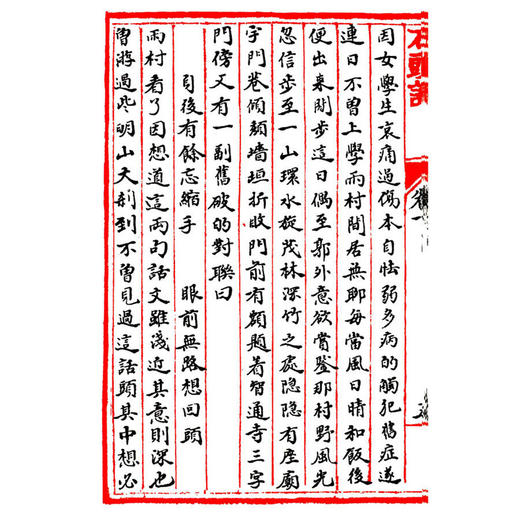 石頭記
卷一
因女學生哀痛過傷本自怯弱多病的觸犯舊症遂
連日不曾上學雨村閒居無聊每當風日晴和飯後
便出來閒步這日偶至郭外意欲賞鑒那村野風光
忽信步至一山環水旋茂林深竹之處隐隐有座廟
宇門巷傾頹墻垣折敗門前有額題着智通寺三字
門傍又有一副舊破的對聯曰
身後有餘忘縮手　眼前無路想回頭
雨村看了因想道這兩句話文雖淺近其意則深也
曾游過些明山大刹到不曾見過這話頭其中想必